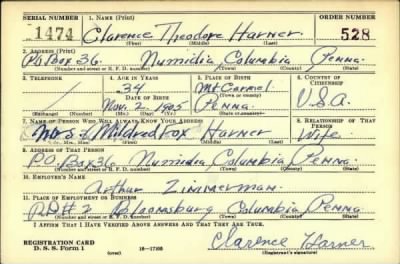 SERIAL NUMBER 1. NAME (Print) ORDER NUMBER
1474 Clarence Theodore Harner 528
(First) (Middle) (Last)
2. ADDRESS (Print)
P.O. Box 36. Numidia Columbia Penna.
(Number and street or R. F. D. number) (Town) (County) (State)
3. TELEPHONE 4. AGE IN YEARS 5. PLACE OF BIRTH 6. COUNTRY OF CITIZENSHIP
34 Mt Carmel
DATE OF BIRTH (Town or county)
Nov. 2, 1905 Penna. U.S.A.
(Exchange) (Number) (Mo.) (Day) (Yr.) (State or country)
7. NAME OF PERSON WHO WILL ALWAYS KNOW YOUR ADDRESS 8. RELATIONSHIP OF THAT PERSON
Mrs. Mildred Fox Harner Wife.
(Mr., Mrs., Miss) (First) (Middle) (Last)
9. ADDRESS OF THAT PERSON
P.O. Box 36 Numidia Columbia Penna
(Number and street or R. F. D. number) (Town) (County) (State)
10. EMPLOYER'S NAME
Arthur Zimmerman.
11. PLACE OF EMPLOYMENT OR BUSINESS
R.D. # 2 Bloomsburg Columbia Penna
(Number and street or R. F. D. number) (Town) (County) (State)
I AFFIRM THAT I HAVE VERIFIED ABOVE ANSWERS AND THAT THEY ARE TRUE.
REGISTRATION CARD
D. S. S. Form 1 (over) 16—17105 Clarence Harner
(Registrant's signature)